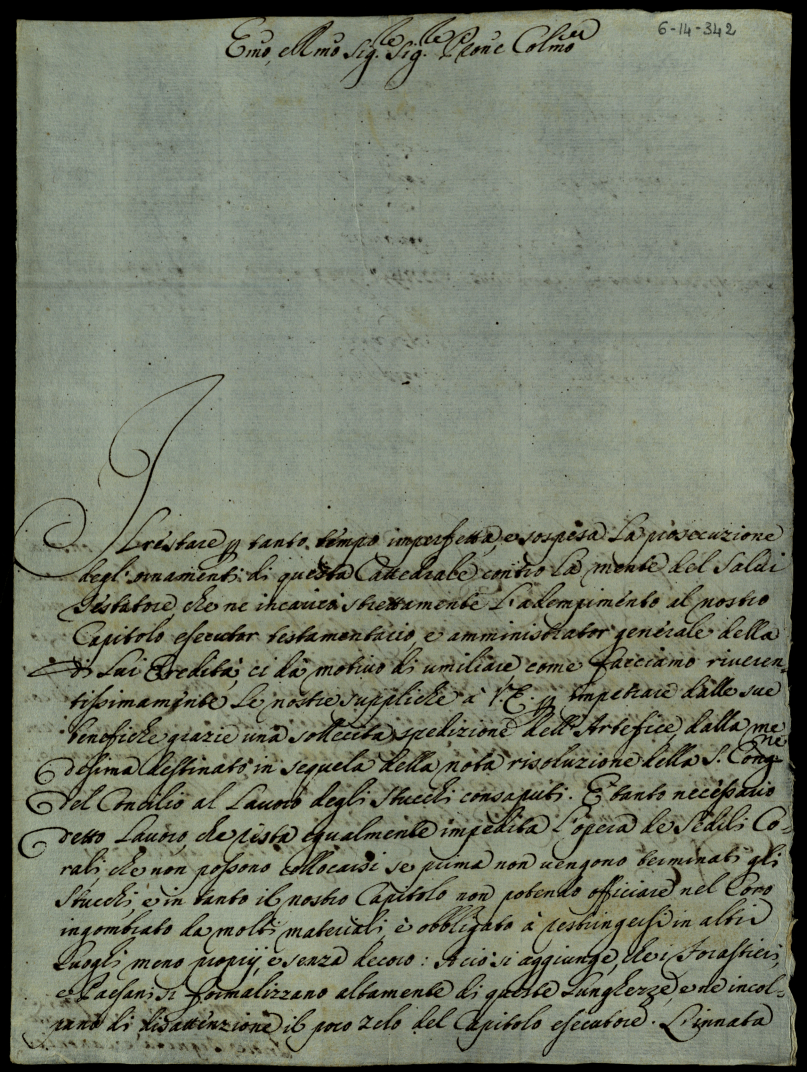 6-14-342
Emo, e Rmo Sig.re Sig.re P̃rone Colmo
Il restare p tanto tempo imperfetta, e sospesa la prosecuzione
degl'ornamenti di questa Cattedrale contro la mente del Saldi
Testatore, che ne incaricò strettamente l'adempimento al nostro
Capitolo esecutor testamentario, e amministrator generale della
di lui Eredità, ci dà motivo di umiliare come facciamo riveren-
tissimamente le nostre suppliche à V. E. p impetrare dalle sue
benefiche grazie una sollecita spedizione dell'Artefice, dalla me-
desima destinato in sequela della nota risoluzione della S. Congne
del Concilio al Lavoro degli Stucchi consaputi. È tanto necessario
detto Lavoro, che resta egualmente impedita l'opera de Sedili Co-
rali, che non possono collocarsi se prima non vengono terminati gli
Stucchi, e in tanto il nostro Capitolo non potendo officiare nel Coro
ingombrato da molti materiali, è obbligato à restringersi in altri
Luoghi meno proprij, e senza decoro: A ciò si aggiunge, che i Forastieri,
e Paesani si formalizzano altamente di queste Lunghezze, e ne incol-
pano di disattenzione il poco zelo del Capitolo esecutore. L'innata